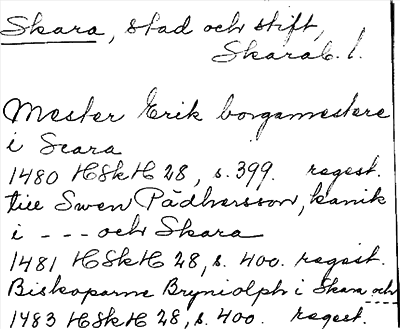 Skara, stad och stift,
Skarab. l.
Mester Erik borgamestere
i Scara
1480 HSkH 28, s. 399. regest.
till Swen Pädhersson, kanik
i - - - och Skara
1481 HSkH 28, s. 400. regest.
Biskoparne Bryniolph i Skara och
1483 HSkH 28, s. 400. regest.